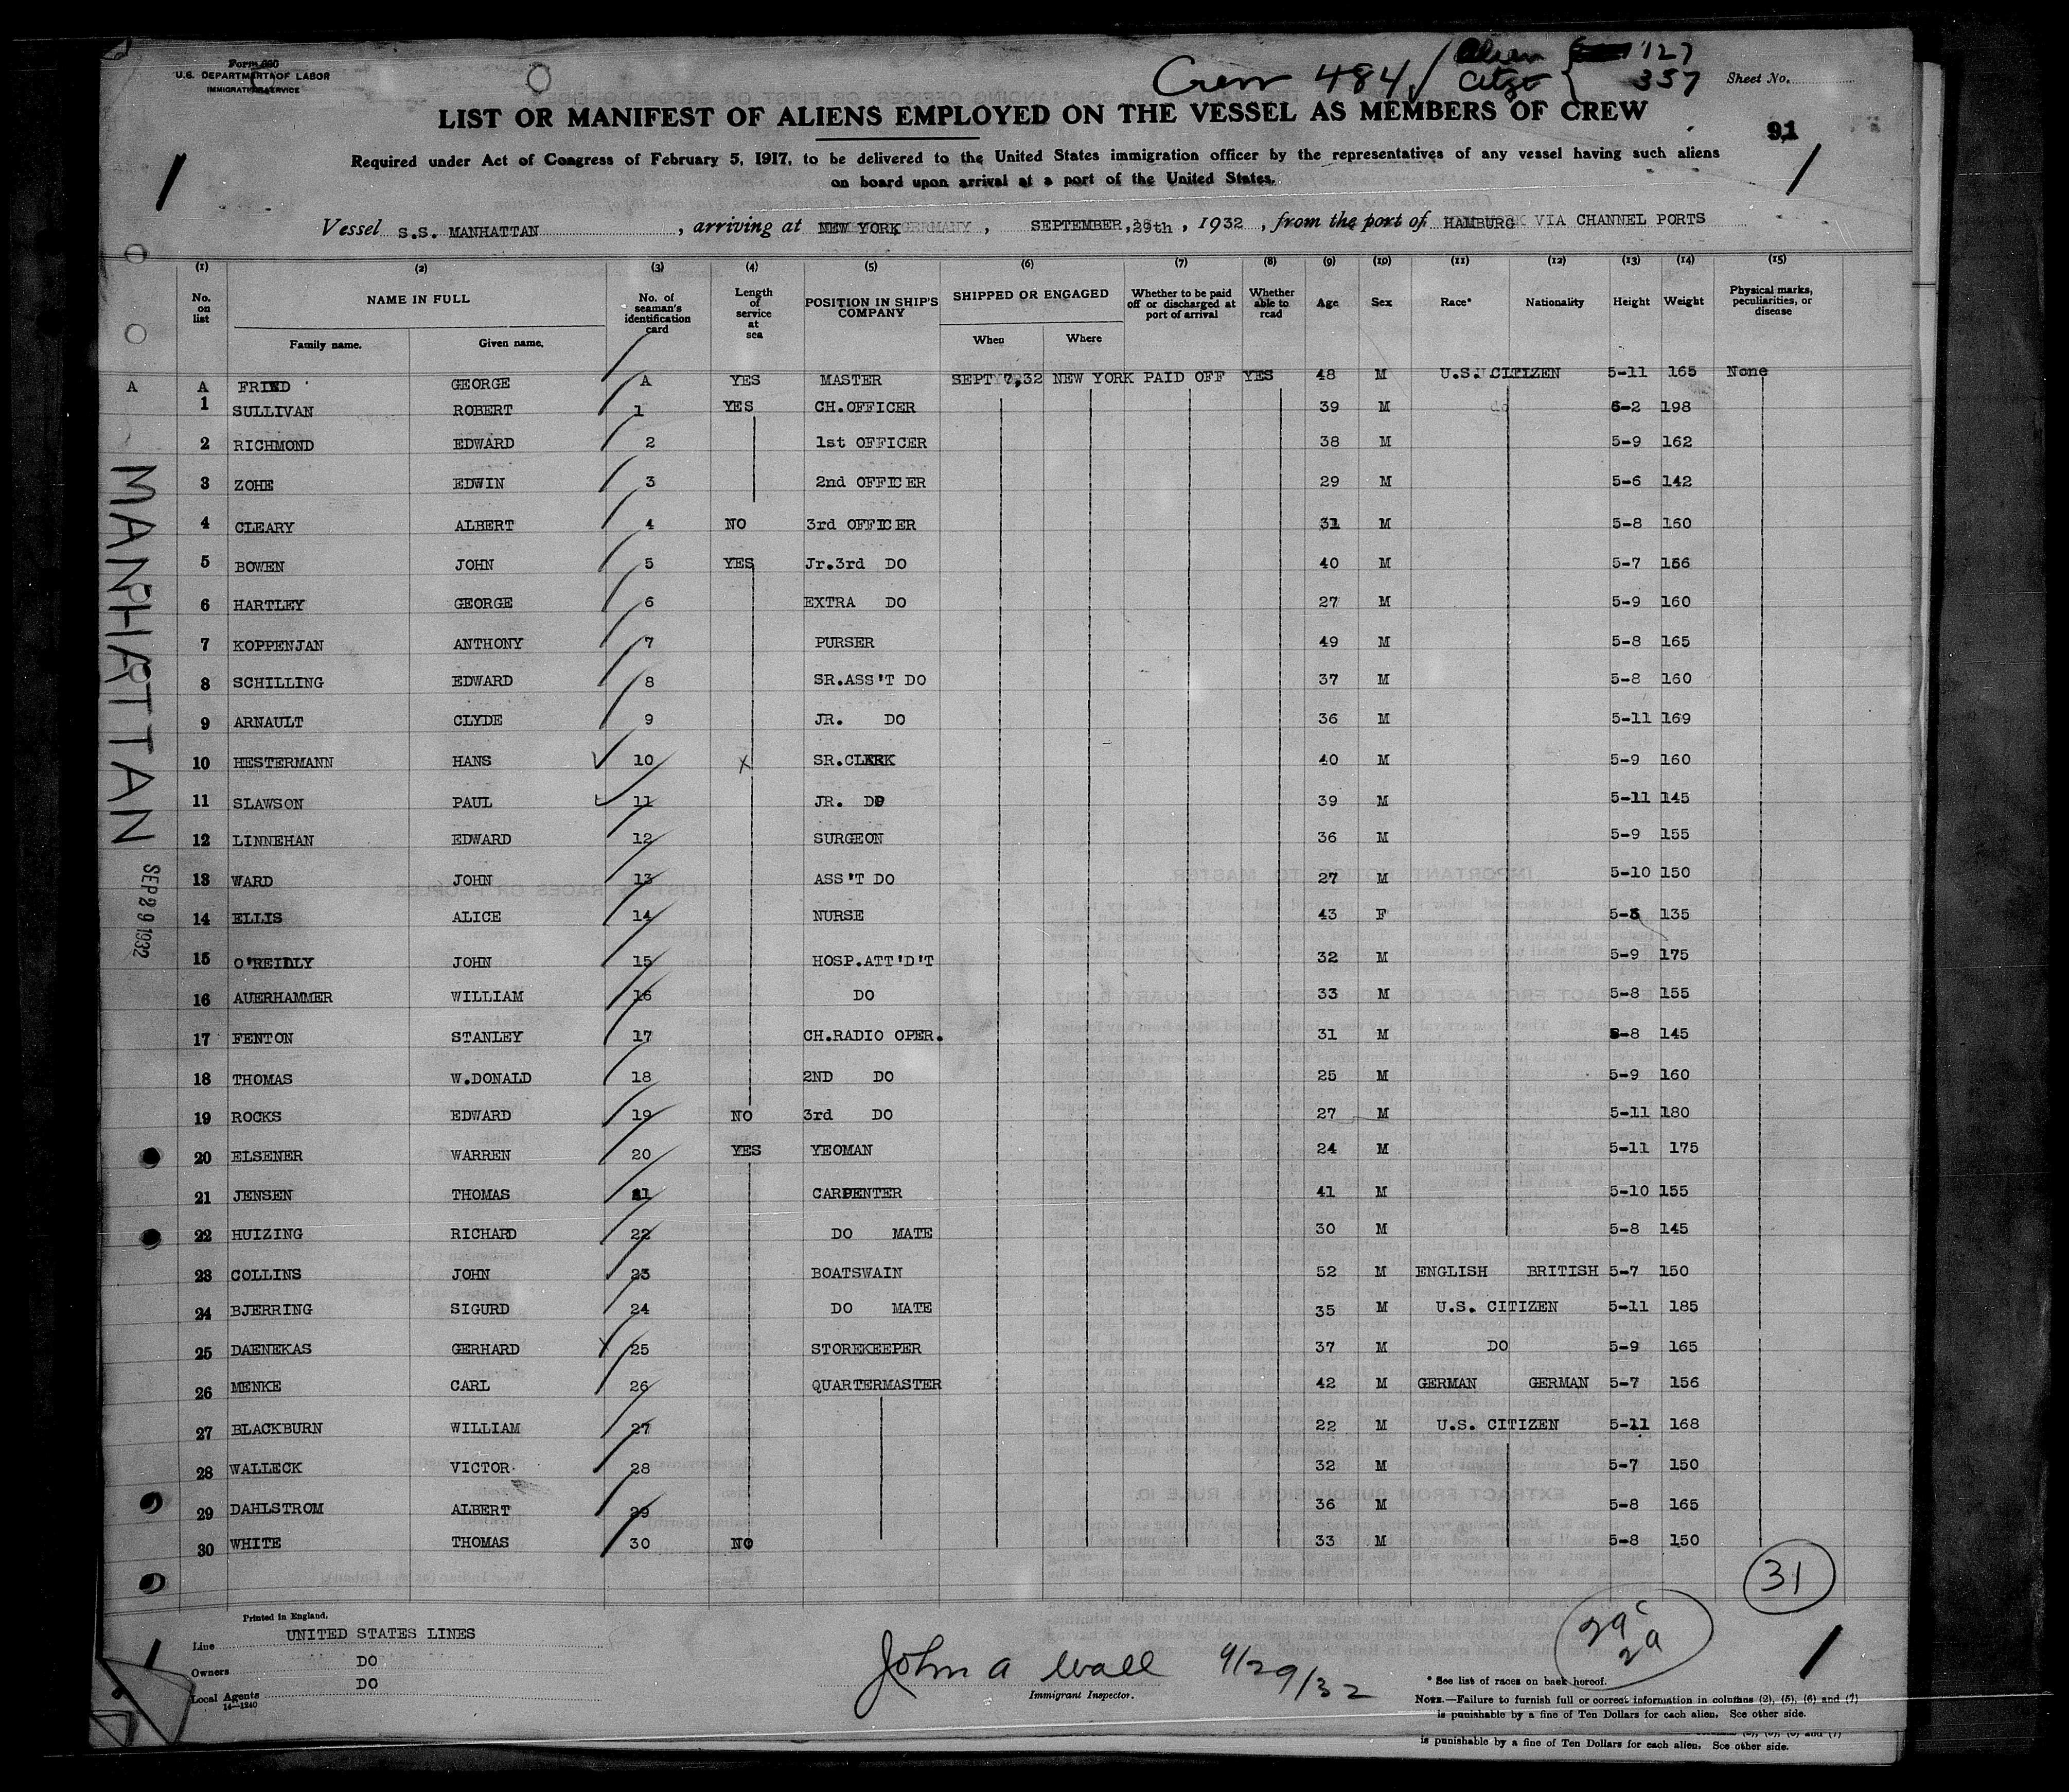 Form 680
U.S. DEPARTMENT OF LABOR
IMMIGRATION SERVICE
Crew 484 / Alien { 127
Citze { 357
Sheet No.
LIST OR MANIFEST OF ALIENS EMPLOYED ON THE VESSEL AS MEMBERS OF CREW
91
Required under Act of Congress of February 5, 1917, to be delivered to the United States immigration officer by the representatives of any vessel having such aliens
on board upon arrival at a port of the United States.
Vessel S.S. MANHATTAN, arriving at NEW YORK, SEPTEMBER, 29th, 1932, from the port of HAMBURG VIA CHANNEL PORTS
(1) (2) (3) (4) (5) (6) (7) (8) (9) (10) (11) (12) (13) (14) (15)
No. on list NAME IN FULL Family name. Given name. No. of seaman's identification card Length of service at sea POSITION IN SHIP'S COMPANY SHIPPED OR ENGAGED When Where Whether to be paid off or discharged at port of arrival Whether able to read Age Sex Race* Nationality Height Weight Physical marks, peculiarities, or disease
A A FRIED GEORGE A YES MASTER SEPT 7,32 NEW YORK PAID OFF YES 48 M U.S. CITIZEN 5-11 165 None
1 SULLIVAN ROBERT 1 YES CH.OFFICER 39 M do 6-2 198
2 RICHMOND EDWARD 2 1st OFFICER 38 M 5-9 162
3 ZOHE EDWIN 3 2nd OFFICER 29 M 5-6 142
4 CLEARY ALBERT 4 NO 3rd OFFICER 31 M 5-8 160
5 BOWEN JOHN 5 YES Jr.3rd DO 40 M 5-7 156
6 HARTLEY GEORGE 6 EXTRA DO 27 M 5-9 160
7 KOPPENJAN ANTHONY 7 PURSER 49 M 5-8 165
8 SCHILLING EDWARD 8 SR.ASS'T DO 37 M 5-8 160
9 ARNAULT CLYDE 9 JR. DO 36 M 5-11 169
10 HESTERMANN HANS 10 X SR.CLERK 40 M 5-9 160
11 SLAWSON PAUL 11 JR. DO 39 M 5-11 145
12 LINNEHAN EDWARD 12 SURGEON 36 M 5-9 155
13 WARD JOHN 13 ASS'T DO 27 M 5-10 150
14 ELLIS ALICE 14 NURSE 43 F 5-5 135
15 O'REILLY JOHN 15 HOSP.ATT'D'T 32 M 5-9 175
16 AUERHAMMER WILLIAM 16 DO 33 M 5-8 155
17 FENTON STANLEY 17 CH.RADIO OPER. 31 M 5-8 145
18 THOMAS W.DONALD 18 2ND DO 25 M 5-9 160
19 ROCKS EDWARD 19 NO 3rd DO 27 M 5-11 180
20 ELSENER WARREN 20 YES YEOMAN 24 M 5-11 175
21 JENSEN THOMAS 21 CARPENTER 41 M 5-10 155
22 HUIZING RICHARD 22 DO MATE 30 M 5-8 145
23 COLLINS JOHN 23 BOATSWAIN 52 M ENGLISH BRITISH 5-7 150
24 BJERRING SIGURD 24 DO MATE 35 M U.S. CITIZEN 5-11 185
25 DAENEKAS GERHARD 25 STOREKEEPER 37 M DO 5-9 165
26 MENKE CARL 26 QUARTERMASTER 42 M GERMAN GERMAN 5-7 156
27 BLACKBURN WILLIAM 27 22 M U.S. CITIZEN 5-11 168
28 WALLECK VICTOR 28 32 M 5-7 150
29 DAHLSTROM ALBERT 29 36 M 5-8 165
30 WHITE THOMAS 30 NO 33 M 5-8 150
MANHATTAN
SEP 29 1932
31
29 c
2 a
Printed in England.
Line UNITED STATES LINES
Owners DO
Local Agents DO
14—1240
John A Wall 9/29/32
Immigrant Inspector.
* See list of races on back hereof.
NOTE.—Failure to furnish full or correct information in columns (2), (5), (6) and (7)
is punishable by a fine of Ten Dollars for each alien. See other side.
is punishable by a fine of Ten Dollars for each alien. See other side.